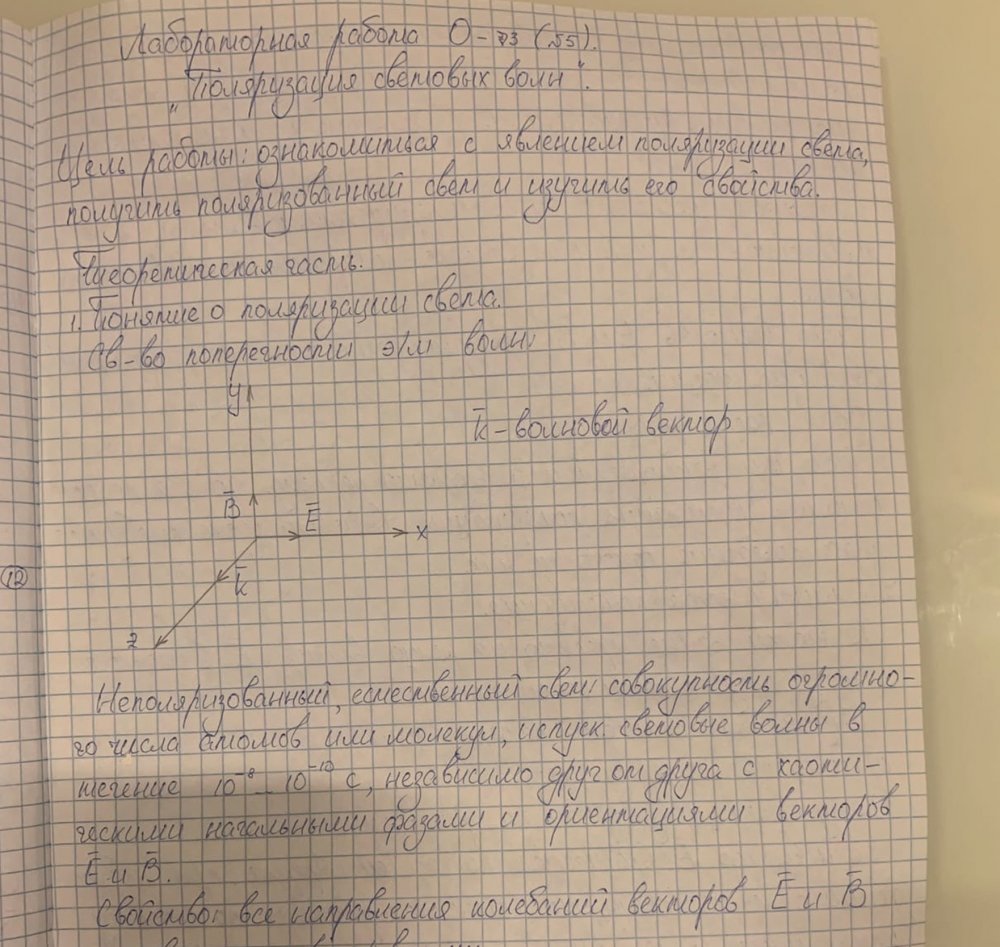 Лабораторная работа О-73 (55).
"Поляризация световых волн".
Цель работы: ознакомиться с явлением поляризации света,
получить поляризованный свет и изучить его свойства.
Теоретическая часть.
1. Понятие о поляризации света.
Св-во поперечности э/м волн:
y
k̄ - волновой вектор
B̄
Ē
x
k̄
12
z
Неполяризованный, естественный свет: совокупность огромно-
го числа атомов или молекул, испуск. световые волны в
течение 10⁻⁸ - 10⁻¹⁰ с, независимо друг от друга с хаоти-
ческими начальными фазами и ориентациями векторов
Ē и B̄.
Свойство: все направления колебаний векторов Ē и B̄